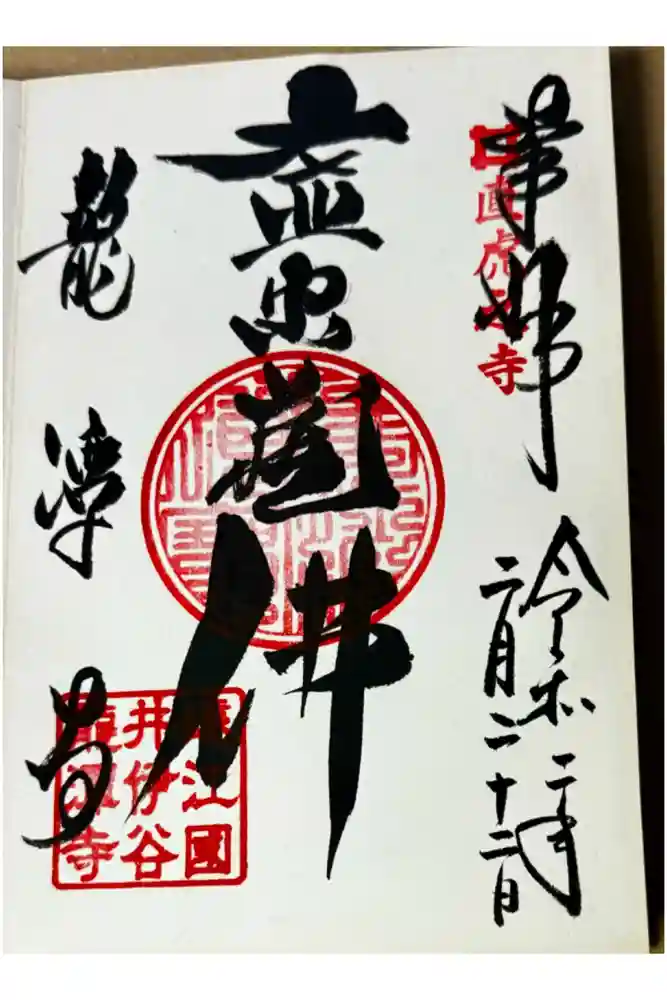 奉拝
直虎 寺
令和二年
二月二十二日
虚空蔵佛
龍潭寺
遠江國
井伊谷
龍潭寺